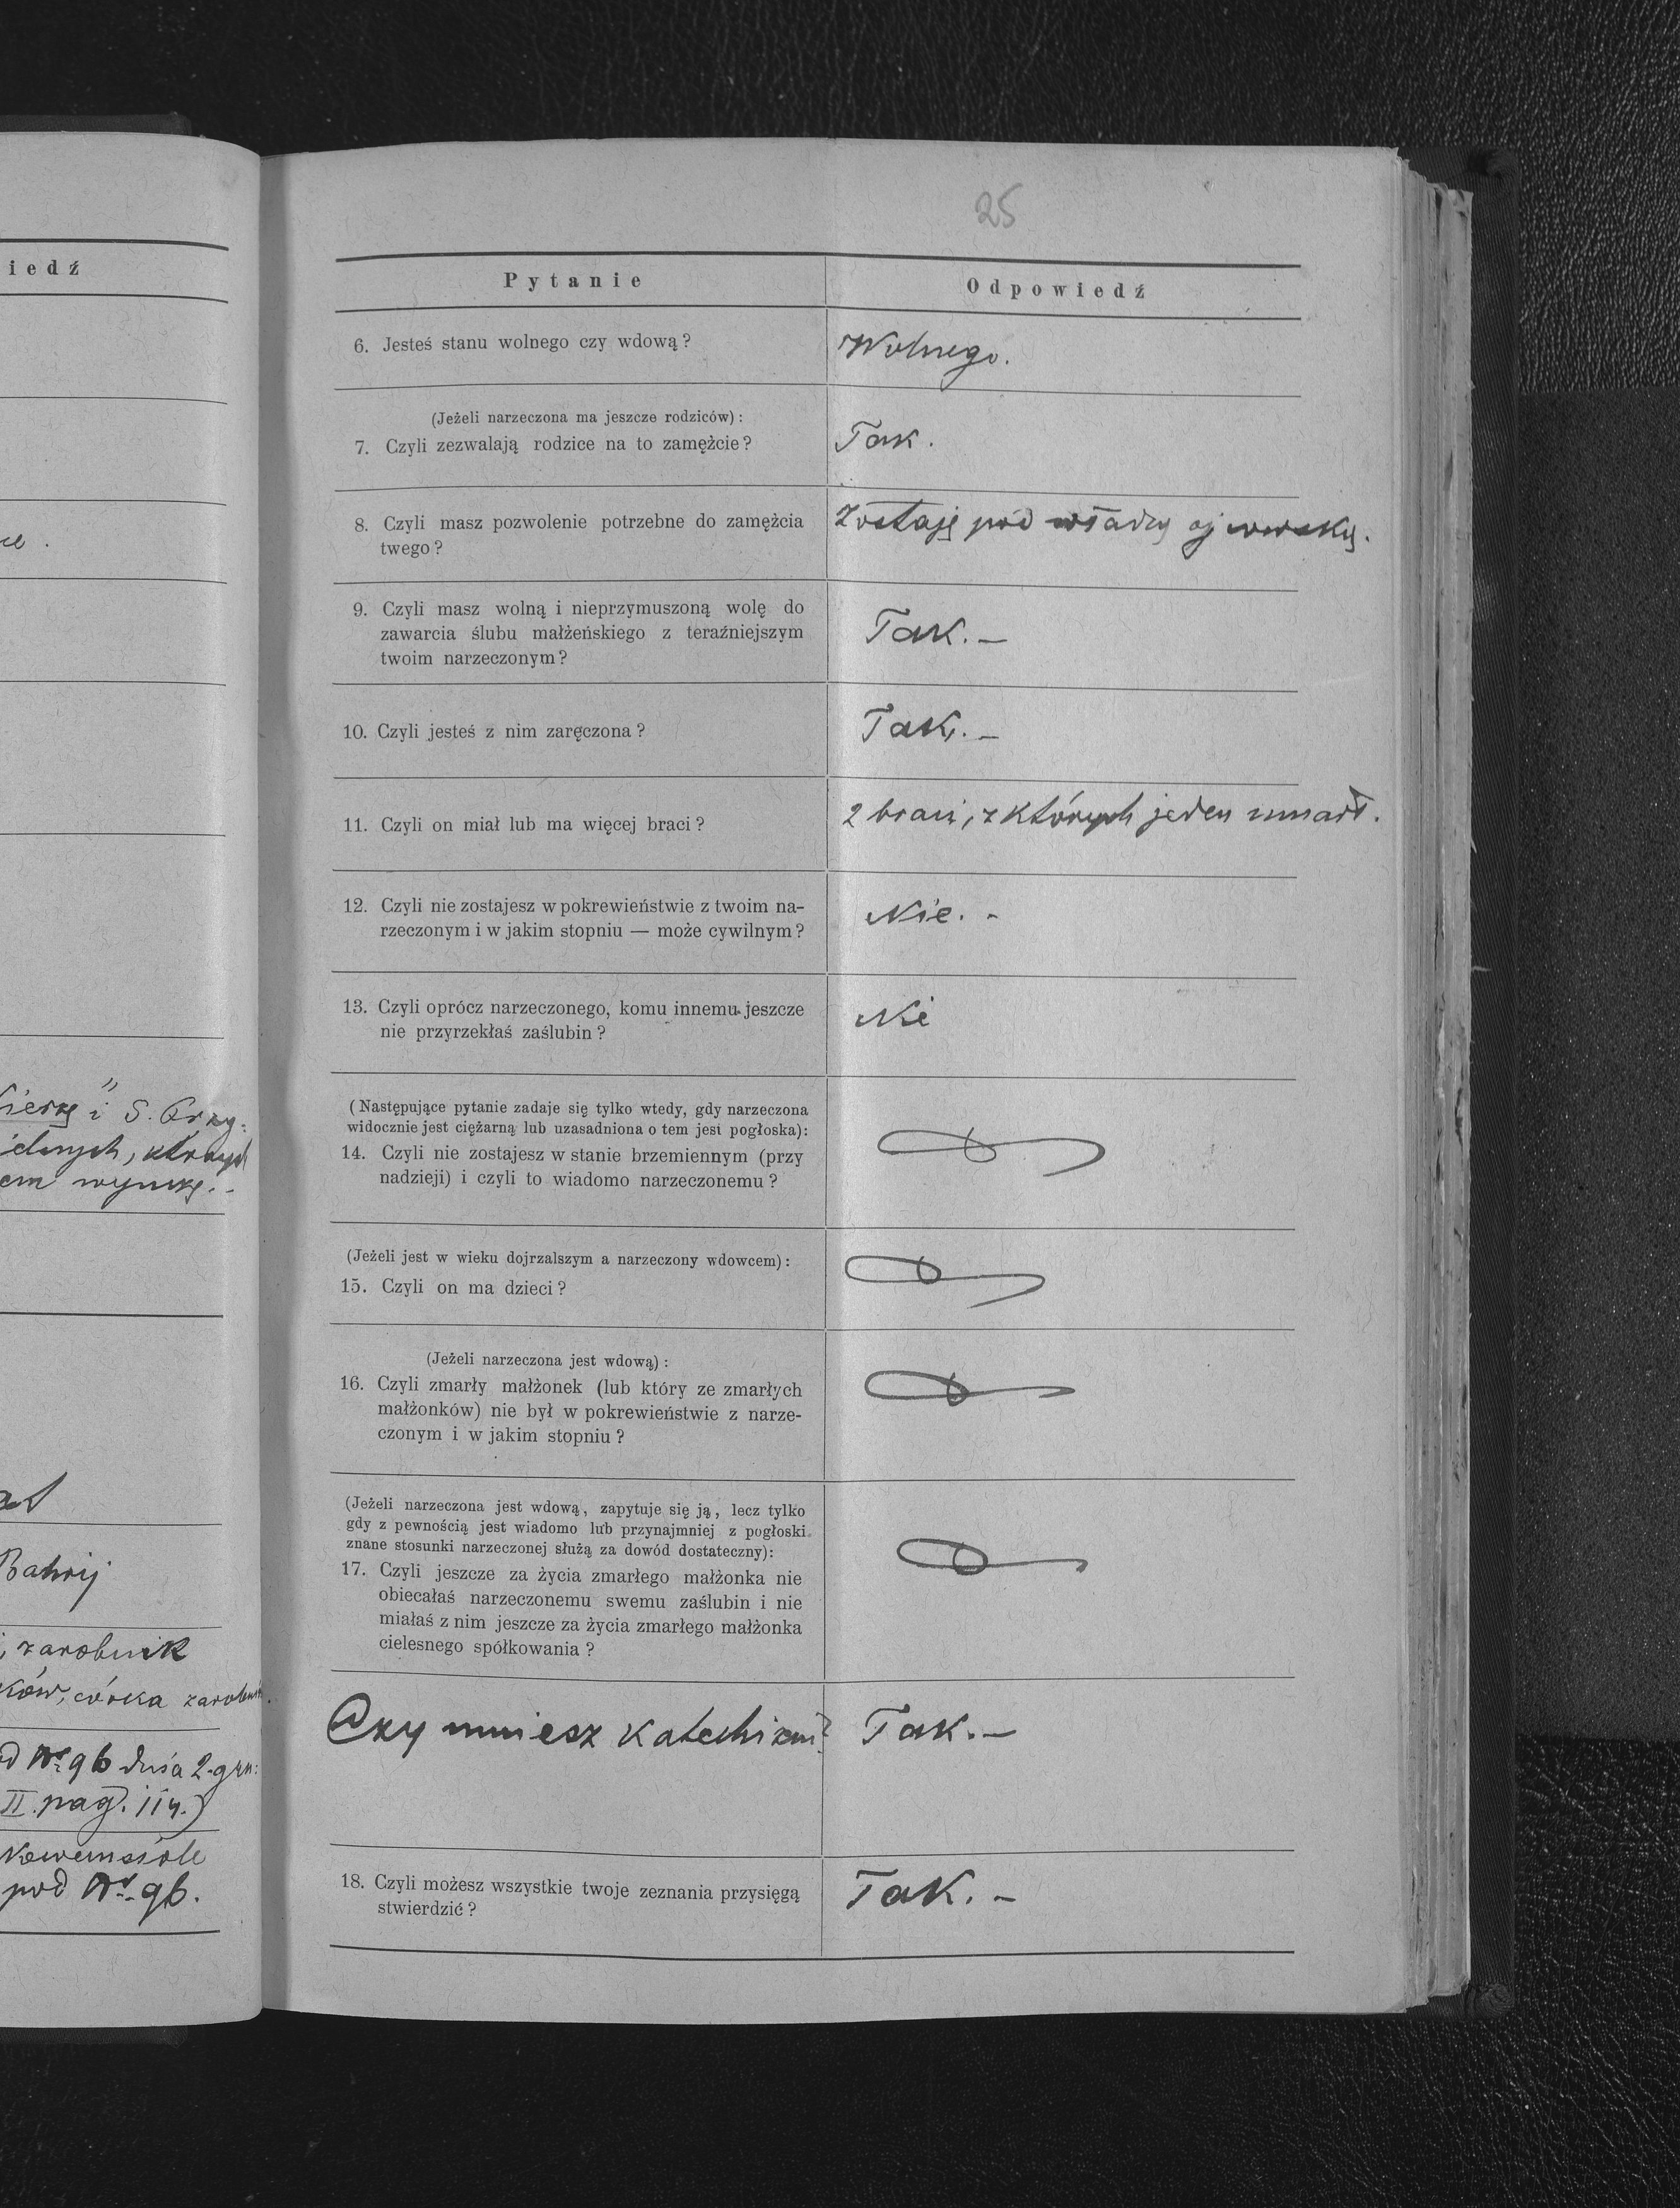 25
iedź
ce.
i S. Grzy:
których
em
Bahrij
, zarobnik
ków, córka zarobnik.
d Nr 96 dnia 2. gru:
II. pag. 114.)
pod Nr 96.
Pytanie Odpowiedź
6. Jesteś stanu wolnego czy wdową? Wolnego.
(Jeżeli narzeczona ma jeszcze rodziców):
7. Czyli zezwalają rodzice na to zamężcie? Tak.
8. Czyli masz pozwolenie potrzebne do zamężcia Zostaję pod władzą ojcowską.
twego?
9. Czyli masz wolną i nieprzymuszoną wolę do
zawarcia ślubu małżeńskiego z teraźniejszym Tak.—
twoim narzeczonym?
10. Czyli jesteś z nim zaręczona? Tak.—
11. Czyli on miał lub ma więcej braci? 2 braci, z których jeden umarł.
12. Czyli nie zostajesz w pokrewieństwie z twoim na- Nie.-
rzeczonym i w jakim stopniu — może cywilnym?
13. Czyli oprócz narzeczonego, komu innemu jeszcze Nie
nie przyrzekłaś zaślubin?
(Następujące pytanie zadaje się tylko wtedy, gdy narzeczona
widocznie jest ciężarną lub uzasadniona o tem jest pogłoska):
14. Czyli nie zostajesz w stanie brzemiennym (przy
nadzieji) i czyli to wiadomo narzeczonemu?
(Jeżeli jest w wieku dojrzalszym a narzeczony wdowcem):
15. Czyli on ma dzieci?
(Jeżeli narzeczona jest wdową):
16. Czyli zmarły małżonek (lub który ze zmarłych
małżonków) nie był w pokrewieństwie z narze-
czonym i w jakim stopniu?
(Jeżeli narzeczona jest wdową, zapytuje się ją, lecz tylko
gdy z pewnością jest wiadomo lub przynajmniej z pogłoski
znane stosunki narzeczonej służą za dowód dostateczny):
17. Czyli jeszcze za życia zmarłego małżonka nie
obiecałaś narzeczonemu swemu zaślubin i nie
miałaś z nim jeszcze za życia zmarłego małżonka
cielesnego spółkowania?
Czy umiesz katechizm? Tak.—
18. Czyli możesz wszystkie twoje zeznania przysięgą Tak.—
stwierdzić?